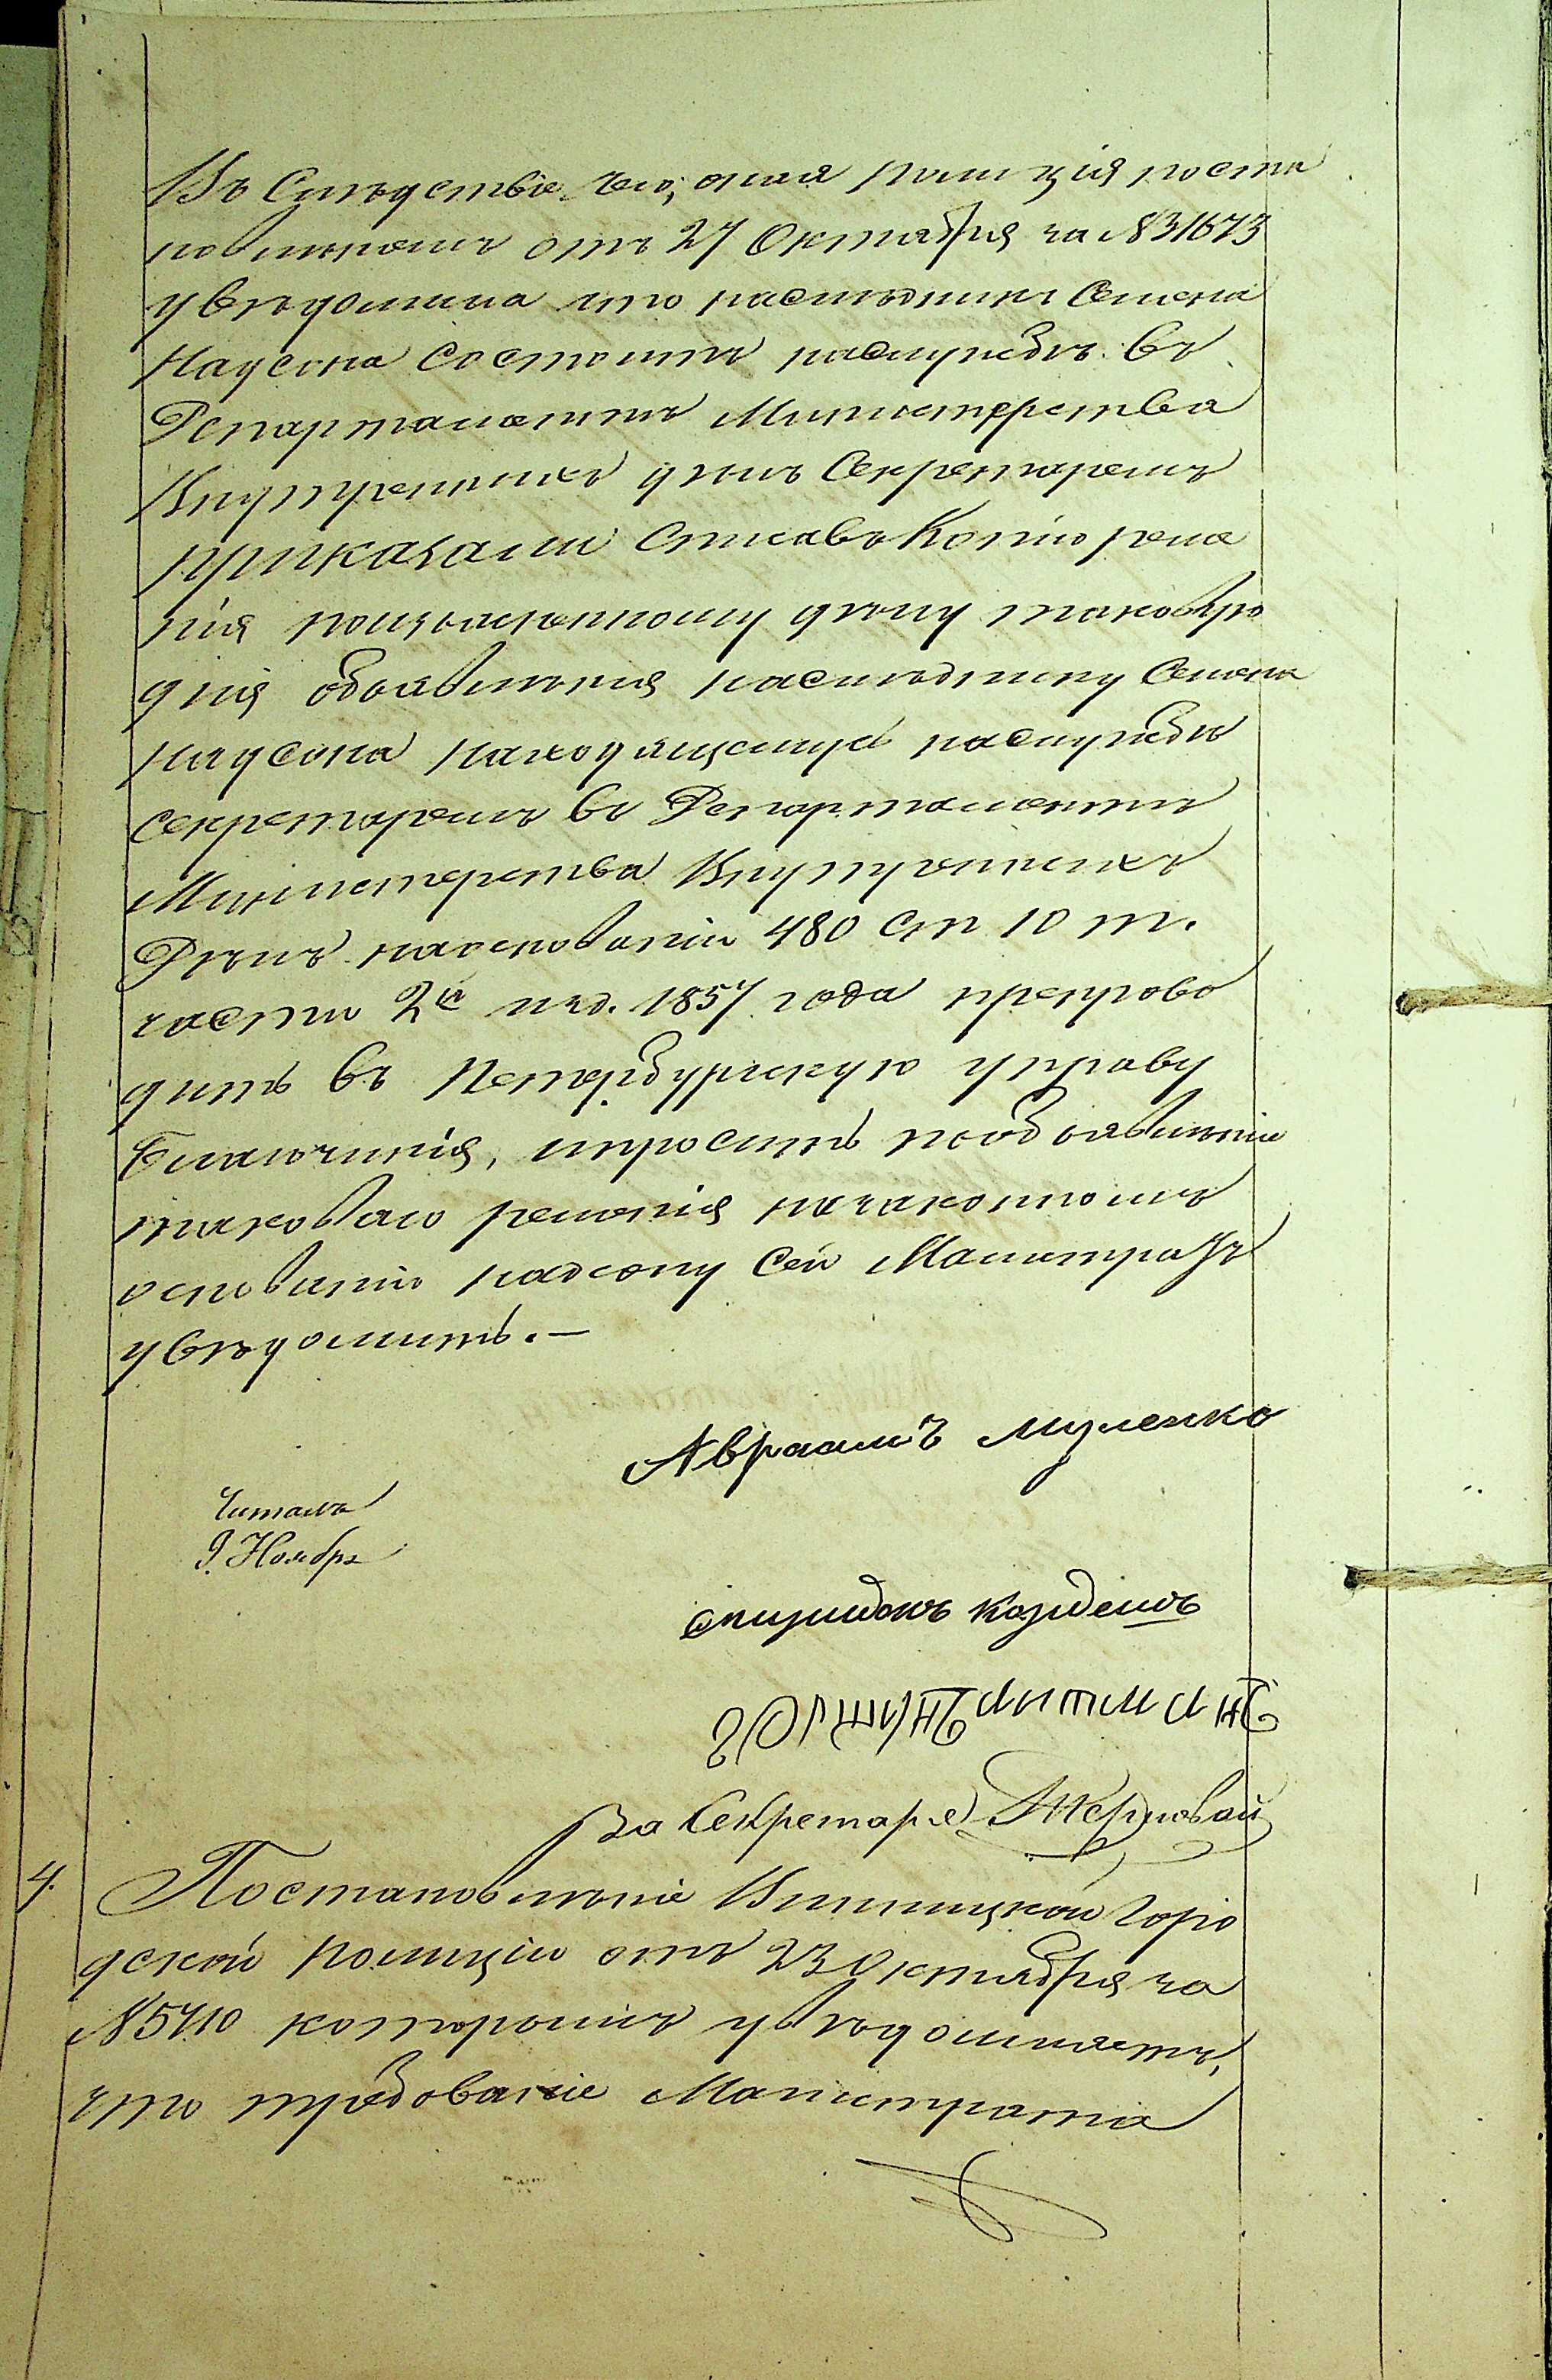 Въ Слѣдствіе чего, оная полиція поста
новленіемъ отъ 27 Октября за №31673
увѣдомила что наслѣдникъ Семена
Надсона Состоитъ наслужбѣ въ
Департаментѣ Министерства
Внутреннихъ дѣлъ Секретаремъ
приказали Списавъ Копію реше
нія поизъясненному дѣлу таковую
для объявленія наслѣднику Семена
надсона находящемуся наслужбѣ
секретаремъ въ Департаментѣ
Министерства Внутреннихъ
Дѣлъ наоснованіи 480 ст 10 т.
части 2й изд. 1857 года препрово
дить въ Петербургскую управу
Благочинія, ипросить пообъявленіи
таковаго решенія назаконномъ
основаніи надсону Сей Магистратъ
увѣдомить.—
Авраамъ
Читалъ
9. Ноябр
За Секретаря Жерновай
4.
Постановленіе Винницкой Горо
дской полиціи отъ 23 Октября за
№5710 которымъ увѣдомляетъ,
что требованіе Магистрата